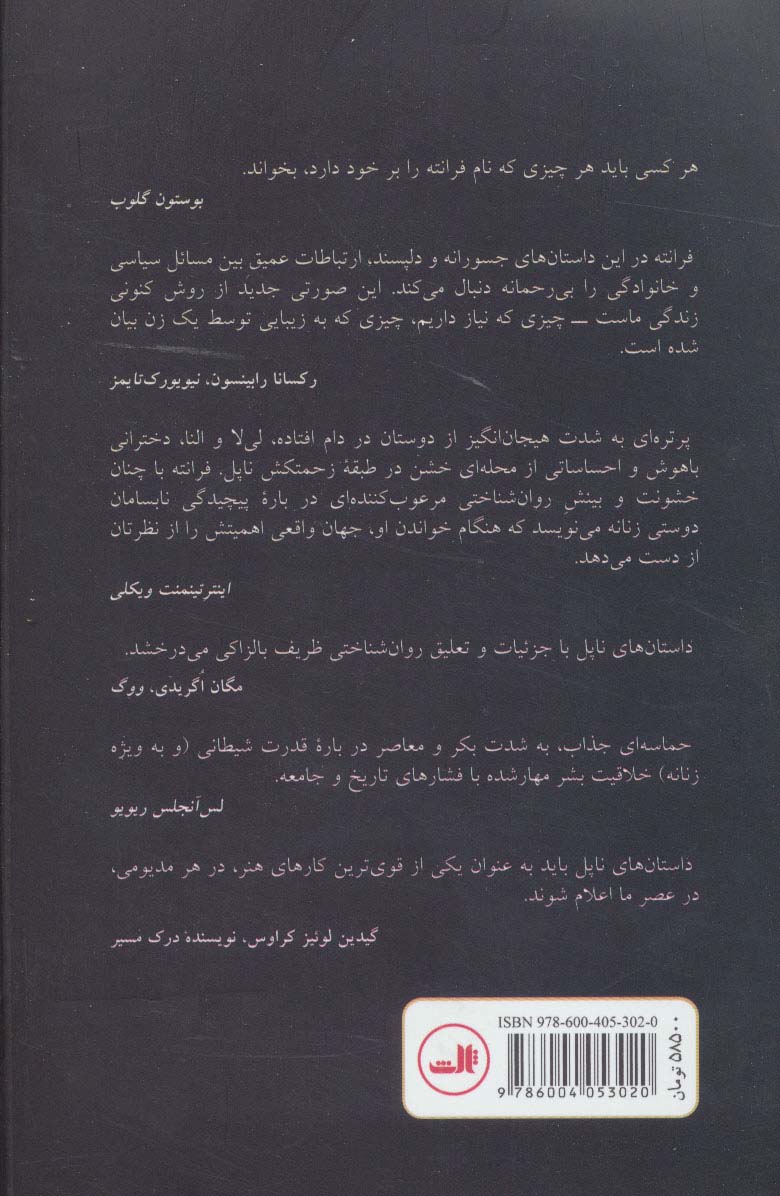 هر کسی باید هر چیزی که نام فرانته را بر خود دارد، بخواند.
بوستون گلوب
فرانته در این داستان‌های جسورانه و دلپسند، ارتباطات عمیقِ بین مسائل سیاسی
و خانوادگی را بی‌رحمانه دنبال می‌کند. این صورتی جدید از روش کنونی
زندگی ماست ــ چیزی که نیاز داریم، چیزی که به زیبایی توسط یک زن بیان
شده است.
رکسانا رابینسون، نیویورک‌تایمز
پرتره‌ای به شدت هیجان‌انگیز از دوستان در دام افتاده، لی‌لا و النا، دخترانی
باهوش و احساساتی از محله‌ای خشن در طبقهٔ زحمتکش ناپل. فرانته با چنان
خشونت و بینشِ روان‌شناختی مرعوب‌کننده‌ای در بارهٔ پیچیدگی نابسامان
دوستی زنانه می‌نویسد که هنگام خواندن او، جهان واقعی اهمیتش را از نظرتان
از دست می‌دهد.
اینترتینمنت ویکلی
داستان‌های ناپل با جزئیات و تعلیق روان‌شناختی ظریف بالزاکی می‌درخشد.
مگان اُگریدی، ووگ
حماسه‌ای جذاب، به شدت بکر و معاصر در بارهٔ قدرت شیطانی (و به ویژه
زنانه) خلاقیت بشر مهارشده با فشارهای تاریخ و جامعه.
لس‌آنجلس ریویو
داستان‌های ناپل باید به عنوان یکی از قوی‌ترین کارهای هنر، در هر مدیومی،
در عصر ما اعلام شوند.
گیدین لوئیز کراوس، نویسندهٔ درک مسیر
ISBN 978-600-405-302-0
ثالث
9 786004 053020
۵۸۵۰۰ تومان